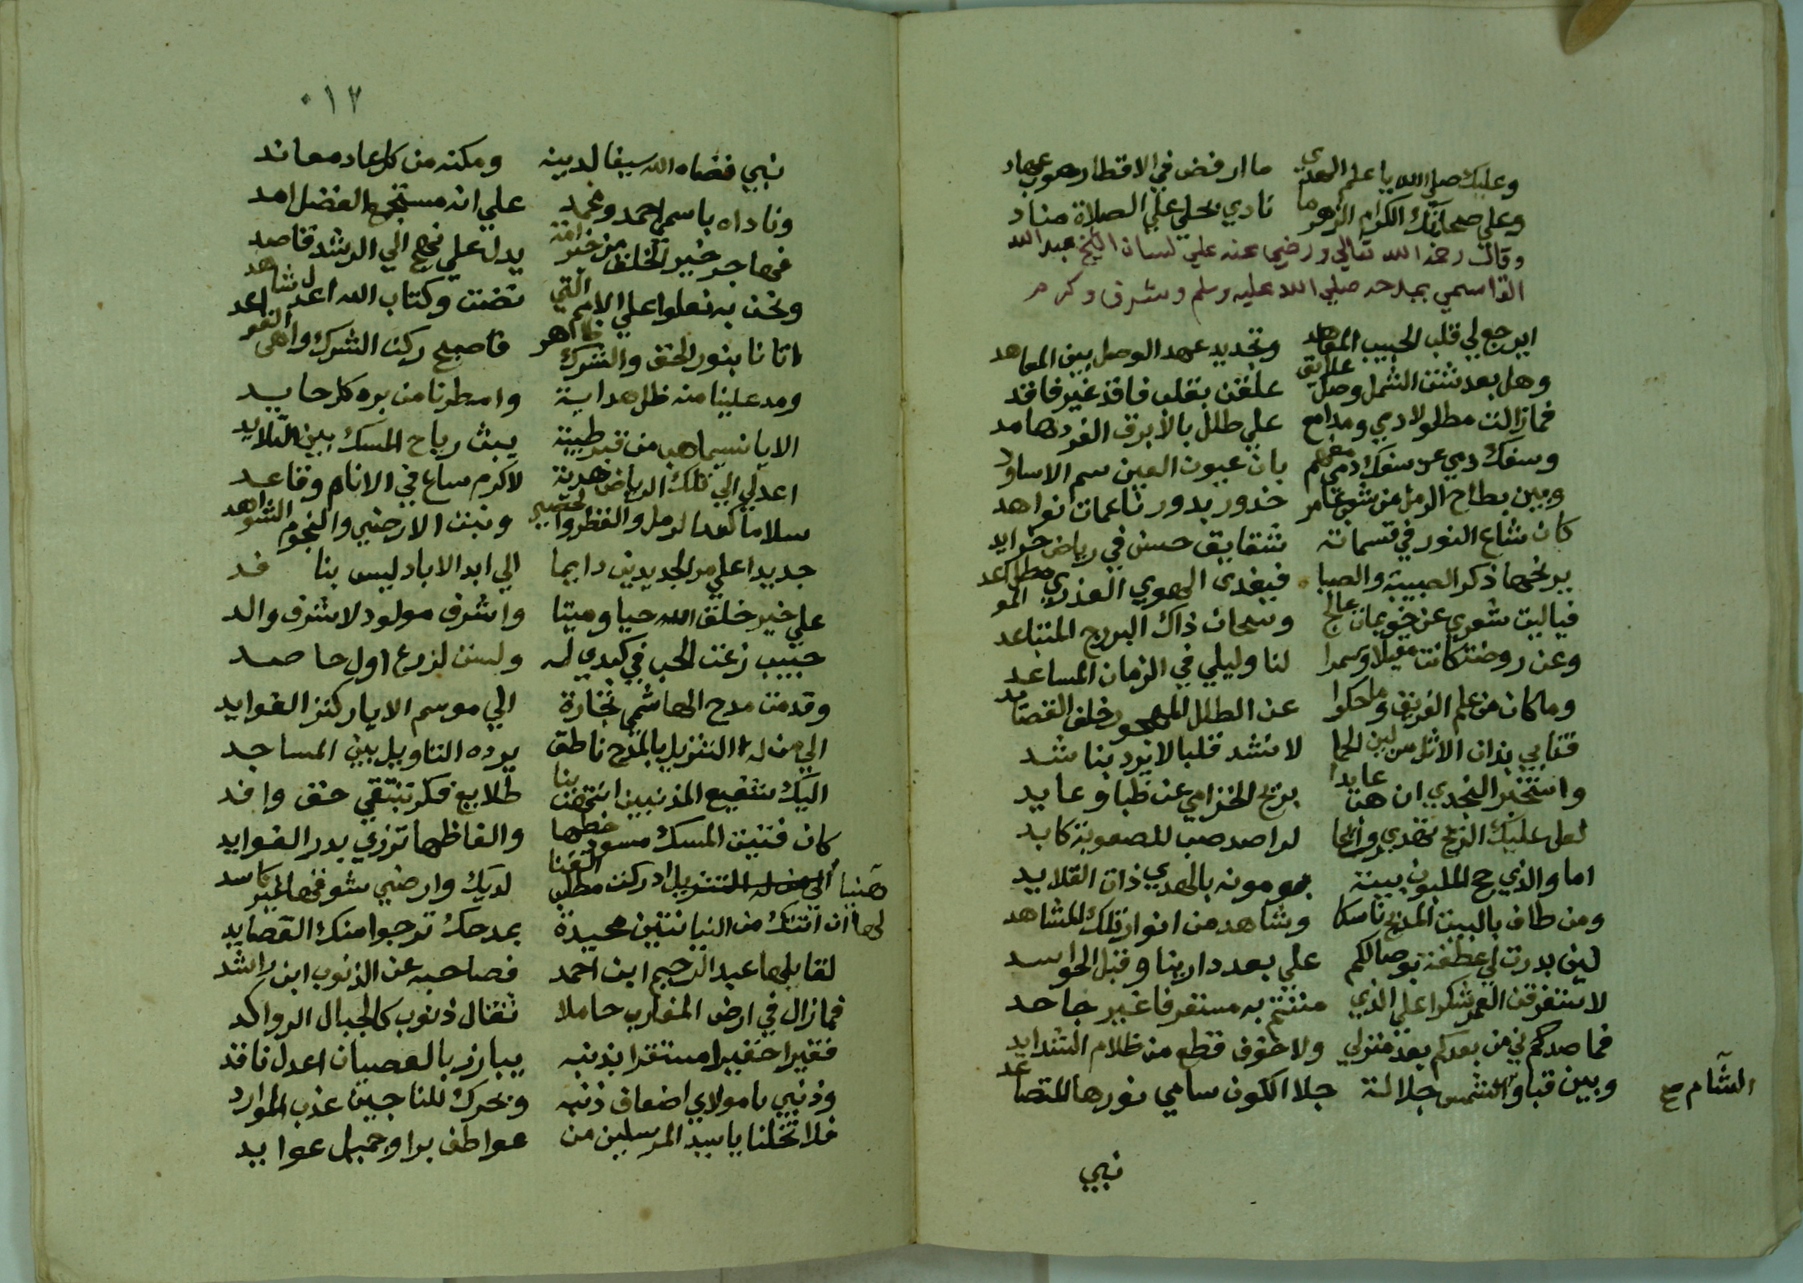 وعليك صلي الله يا علم الهدي ما ارفض في الاقطار صوب عهاد
وعلي صحابتك الكرام الزهر ما نادي بحلي علي الصلاة مناد
وقال رحمه الله تعالي ورضي عنه علي لسان الشيخ عبد الله
القاسمي يمدحه صلي الله عليه وسلم وشرف وكرم
ايرجع لي قلب الحبيب المعاهد وتجديد عهد الوصل بين المعاهد
وهل بعد شتت الشمل وصل علايق علقن بقلب فاقد غير فاقد
فما زالت مطلولا دمي ومدامعي علي طلل بالابرق الفرد هامد
وسفك دمي عن سفك دمعي معلم بان عيون العين سم الاساود
وبين بطاح الرمل من شعب عامر خدور بدور ناعمات نواهد
كان شاع النور في قسماته شقايق حسن في رياض خرايد
يرنحها ذكر الصبيبة والصبا فيغدي الهوي العذري مطل المواعد
فياليت شعري عن خويمات عالج وسحان ذاك البرج المتباعد
وعن روضة كانت مقيلا وسمرا لنا وليلي في الزمان المساعد
وما كان من علم الفريق وما حكوا عن الطلل المهجور خلف القصايد
قفا بي بذات الاثل من ايمن الحما لانشد قلبا لا يرد بناشد
واستخبر النجدي ان هن عايدا بريح الخزامي عن ظبا وعايد
لعل عليك الريح تغدي روايحا لراصد صب للصعوبة كابد
اما والذي حج الملبون بيته يومونه بالهدي ذات القلايد
ومن طاف بالبيت المديح ناسكا وشاهد من انوار تلك المشاهد
لين بدرت لي عطفة بوصالكم علي بعد دارينا وقبل الحواسد
لاستغرقن العمر شكرا علي الذي مننتم به مستغرقا غير جاحد
فما صدكم ني من بعدكم بعد منزلي ولا خوف قطع من ظلام الشدايد
وبين قبا والشام شمس جلالة جلا الكون سامي نورها المتصاعد
الشام صح
نبي
٠١٢
نبي فضاه الله سيفا لدينه ومكنه من كل عاد معاند
وناداه باسمي احمد ومحمد علي انه مستجمع الفضل امد
فهاجر خير الخلق من خير امة يدل علي نهج الي الرشد قاصد
ونحن به نعلوا علي الامم التي تضت وكتاب الله اعدل شاهد
اتانا بنور الحق والشرك ظاهر فاصبح ركن الشرك واهي القواعد
ومد علينا منه ظل هداية وامطرنا من بره كل حايد
الا يا نسيما هب من قبر طيبة يبث رياح المسك بين التلايد
اعد لي الي تلك الرياض هدية لاكرم ساع في الانام وقاعد
سلاما كعد الرمل والقطر والحصي ونبت الارضي والنجوم الشواهد
جديدا علي مر الجديدين دايما الي ابد الاباد ليس بنافد
علي خير خلق الله حيا وميتا واشرف مولود لاشرف والد
حبيب زعت الحب في كبدي له ولست لزرع اول حاصد
وقدمت مدح الهاشمي تجارة الي موسم الايار كنز الفوايد
الي من له التنزيل بالمدح ناطق يرده التاويل بين المساجد
اليك شفيع المذنبين انتحت بنا طلايع فكر تبتقي حق وافد
كان فتيت المسك مسود خطها والفاظها تزري بدر الفوايد
هنيا الي من له التنزيل ادركت مطلب الغنا لديك وارضي شوقها غير كاسد
لها ان اتتك من النيابتين محيدة بمدحك ترجوا منك القصايد
لقابلها عبد الرحيم ابن احمد فصاحبه عن الذنوب ابن راشد
فما زال في ارض المغارب حاملا ثقال ذنوب كالجبال الرواكد
فقيرا حقيرا مستقرا بذنبه يبارز بالعصيان اعدل ناقد
وذنبي يا مولاي اضعاف ذنبه وبحرك للناجين عذب الموارد
فلا تخلنا يا سيد المرسلين من عواطف برا وجميل عوايد